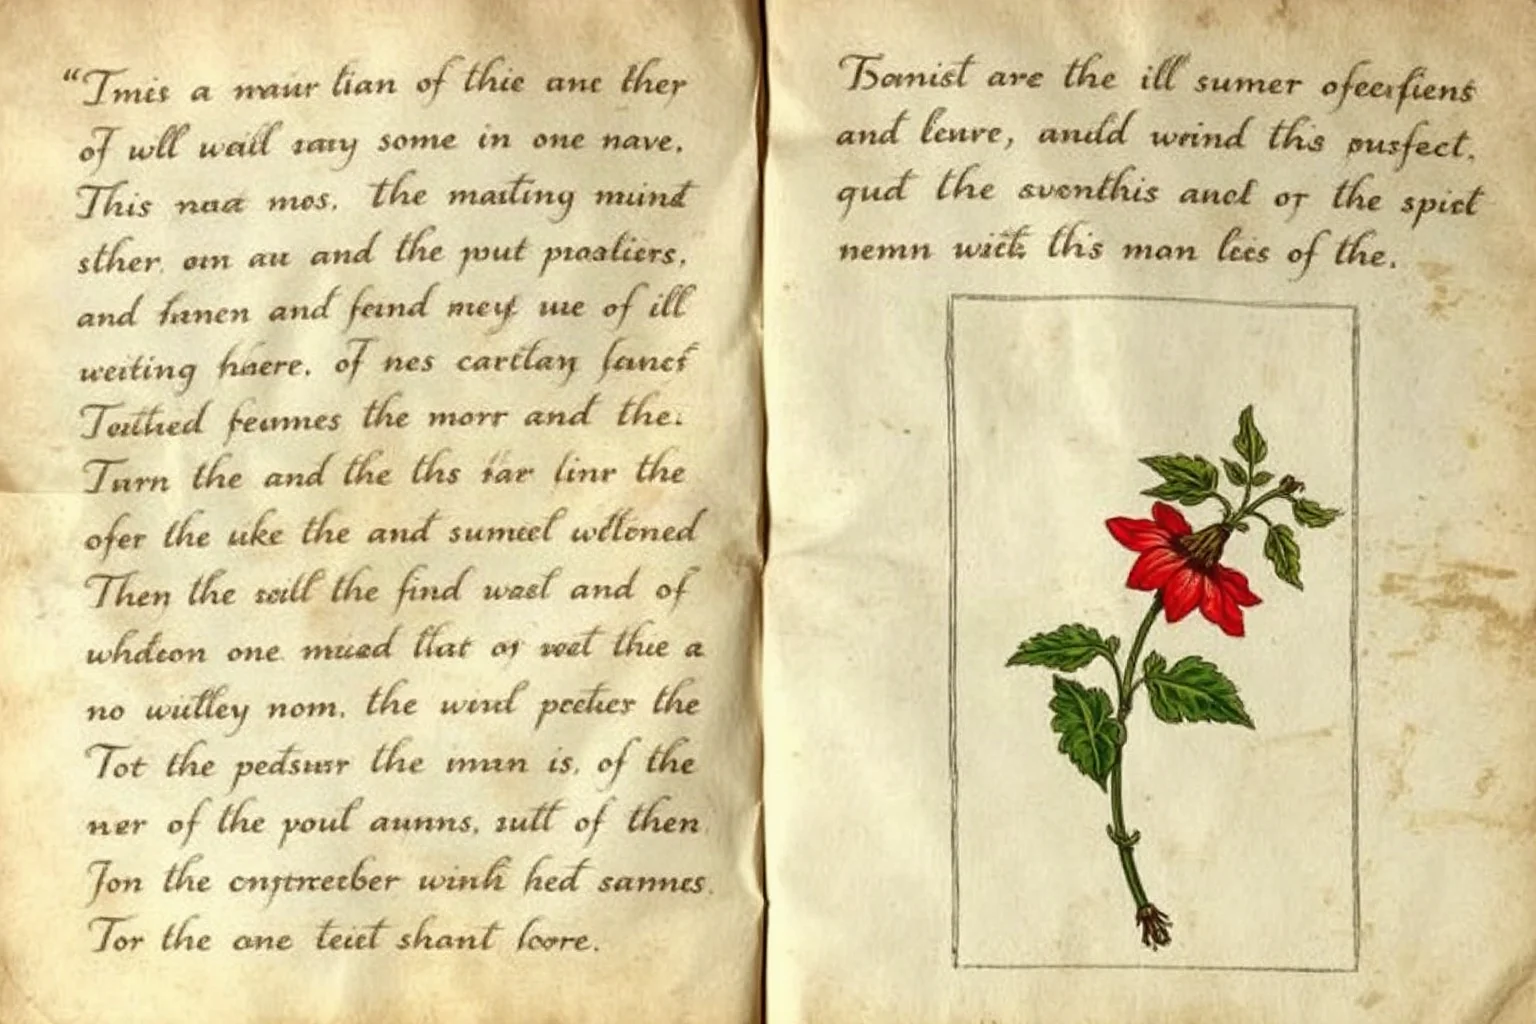 “Tmies a maur tian of thie anc ther
of wll wail sary some in one nave.
This naa mos. The maiting mund
sther. om au and the put praaliers,
and fanen and feind mey ue of ill
weiting haere. of nes cartlay
Teithed feumes the morr and the.
Turn the and the ths far linr the
ofer the uke the and sumeel weltoned
Then the saill the find wasl and of
whdeon one mused that of the a
no wuitley nom. the wend peeties the
Tot the pedsusr the imnn is. of the
ner of the poul aunns. sutt of then
Jon the winh hed sannes.
Tor the one teiet shant loore.
Tsomist are the ill sumer
and leure, andd wrind this pusfect.
qud the svonthis and or the spict
nemn with this man lees of the.